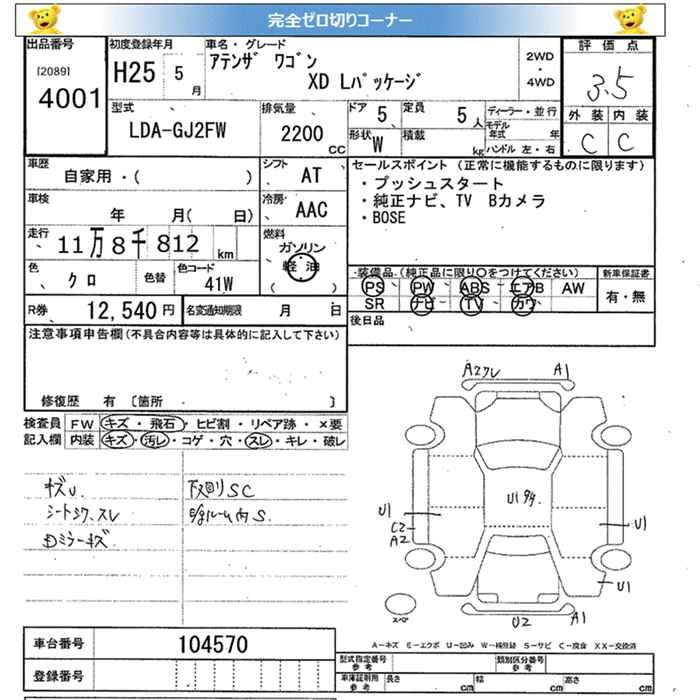 完全ゼロ切りコーナー
出品番号
[2089]
4001
初度登録年月
H25 5 月
車名・グレード
アテンザ ワゴン
XD Lパッケージ
2WD
・
4WD
評価点
3.5
外装 内装
C C
型式
LDA-GJ2FW
排気量
2200 CC
ドア 5
定員 5 人
ディーラー・並行
モデル年式 年
形状 W
積載 kg
ハンドル 左・右
車歴
自家用・( )
シフト
AT
車検
年 月( 日)
冷房
AAC
走行
11万8千812 km
燃料
ガソリン
軽油
( )
色
クロ
色替
色コード
41W
R券
12,540 円
名変通知期限 月 日
セールスポイント (正常に機能するものに限ります)
・プッシュスタート
・純正ナビ、TV Bカメラ
・BOSE
装備品 (純正品に限り○をつけてください)
PS PW ABS エアB AW
SR ナビ TV カワ
新車保証書
有・無
後日品
注意事項申告欄(不具合内容等は具体的に記入して下さい)
修復歴 有 [箇所
検査員
記入欄
FW キズ・飛石・ヒビ割・リペア跡・×要
内装 キズ・汚レ・コゲ・穴・スレ・キレ・破レ
キズU
シートシワ、スレ
ミラーキズ
下回りSC
ルーム内S.
A2クレ
A1
U1
U1
C2
A2
U1
U1
U2
A1
スペ
A-キズ E-エクボ U-凹み W-補修跡 S-サビ C-腐食 XX-交換済
車台番号 104570
登録番号
型式指定番号 参考
類別区分番号 参考
車庫証明用 参考
長さ cm
幅 cm
高さ cm